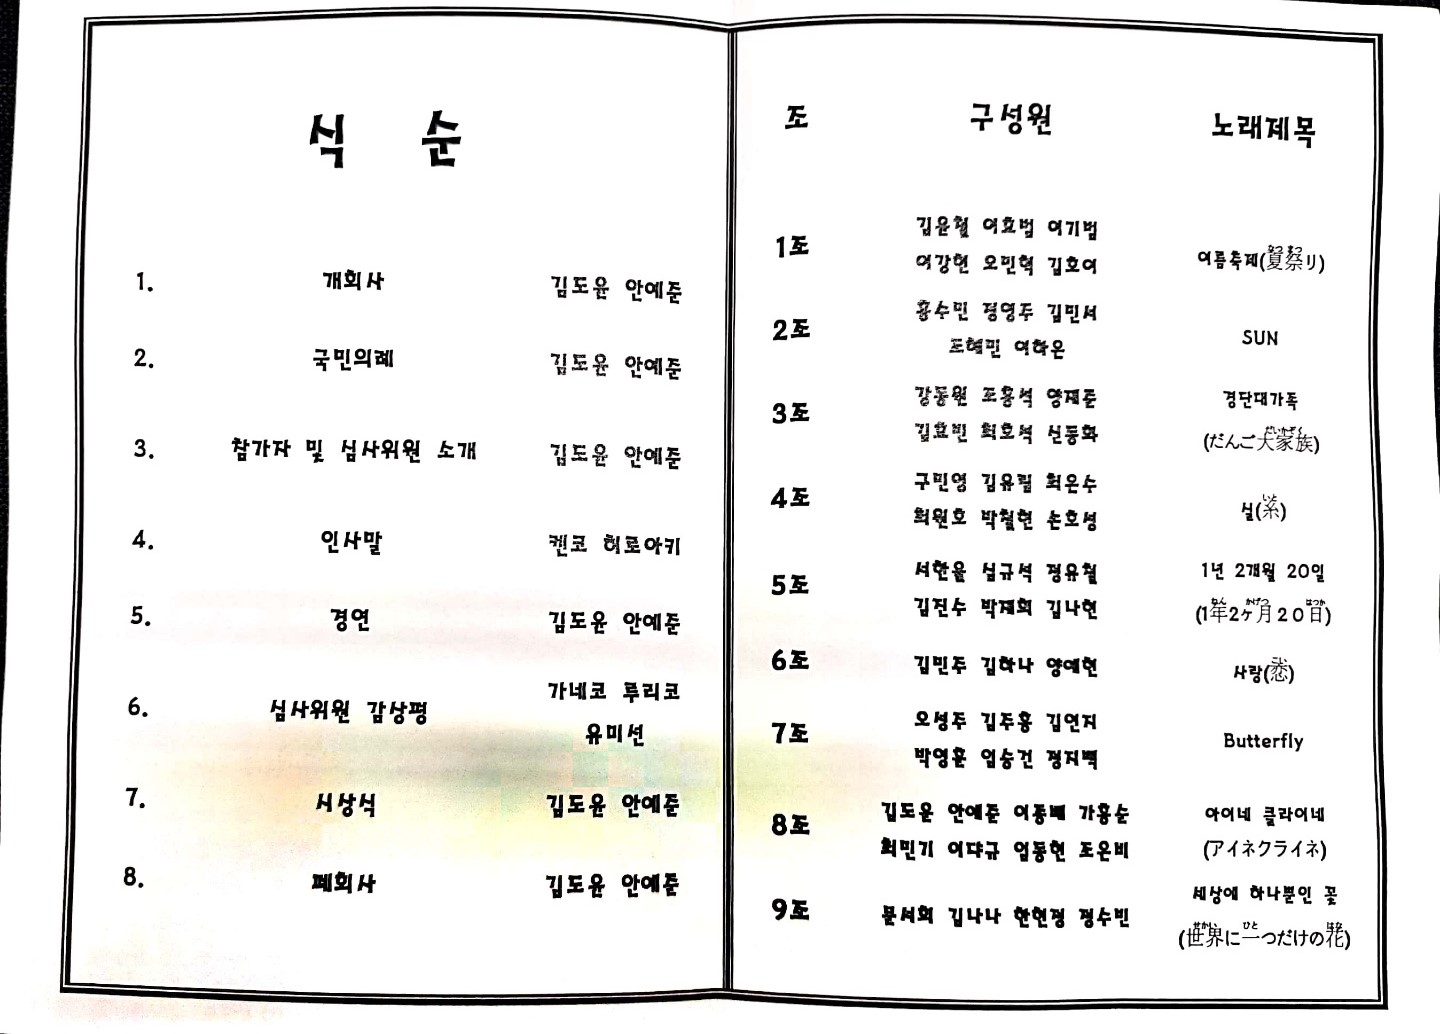 식 순
1. 개회사 김도윤 안예준
2. 국민의례 김도윤 안예준
3. 참가자 및 심사위원 소개 김도윤 안예준
4. 인사말 켄코 히로아키
5. 경연 김도윤 안예준
6. 심사위원 감상평 가네코 루리코
유미선
7. 시상식 김도윤 안예준
8. 폐회사 김도윤 안예준
조 구성원 노래제목
1조 김윤철 이효범 이기범
이강현 오민혁 김호이
여름축제(夏祭り)
なつ まつ
2조 홍수민 정영주 김민서
조혜민 이하은
SUN
3조 강동원 조홍석 양재준
김효빈 최호석 신동화
경단대가족
(だんご大家族)
だいかぞく
4조 구민영 김유림 최은수
최원호 박철현 손호성
실(糸)
いと
5조 서한율 심규석 정유철
김진수 박재희 김나현
1년 2개월 20일
(1年2ヶ月20日)
ねん かげつ はつか
6조 김민주 김하나 양예현 사랑(恋)
こい
7조 오성주 김주홍 김연지
박영훈 임승건 정지백
Butterfly
8조 김도윤 안예준 이동배 가홍순
최민기 임동현 조은비
아이네 클라이네
(アイネクライネ)
9조 문서희 김나나 한현정 정수빈
세상에 하나뿐인 꽃
(世界に一つだけの花)
せかい ひと はな